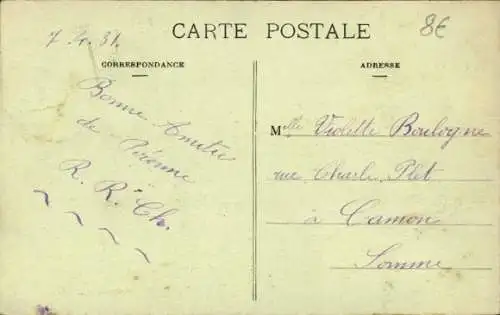 CARTE POSTALE
8€
7. 4. 31.
CORRESPONDANCE
ADRESSE
Bonne Amitié
de Péronne
R. R. Ch.
Melle Violette Boulogne
rue Charle Plet
à Camon
Somme